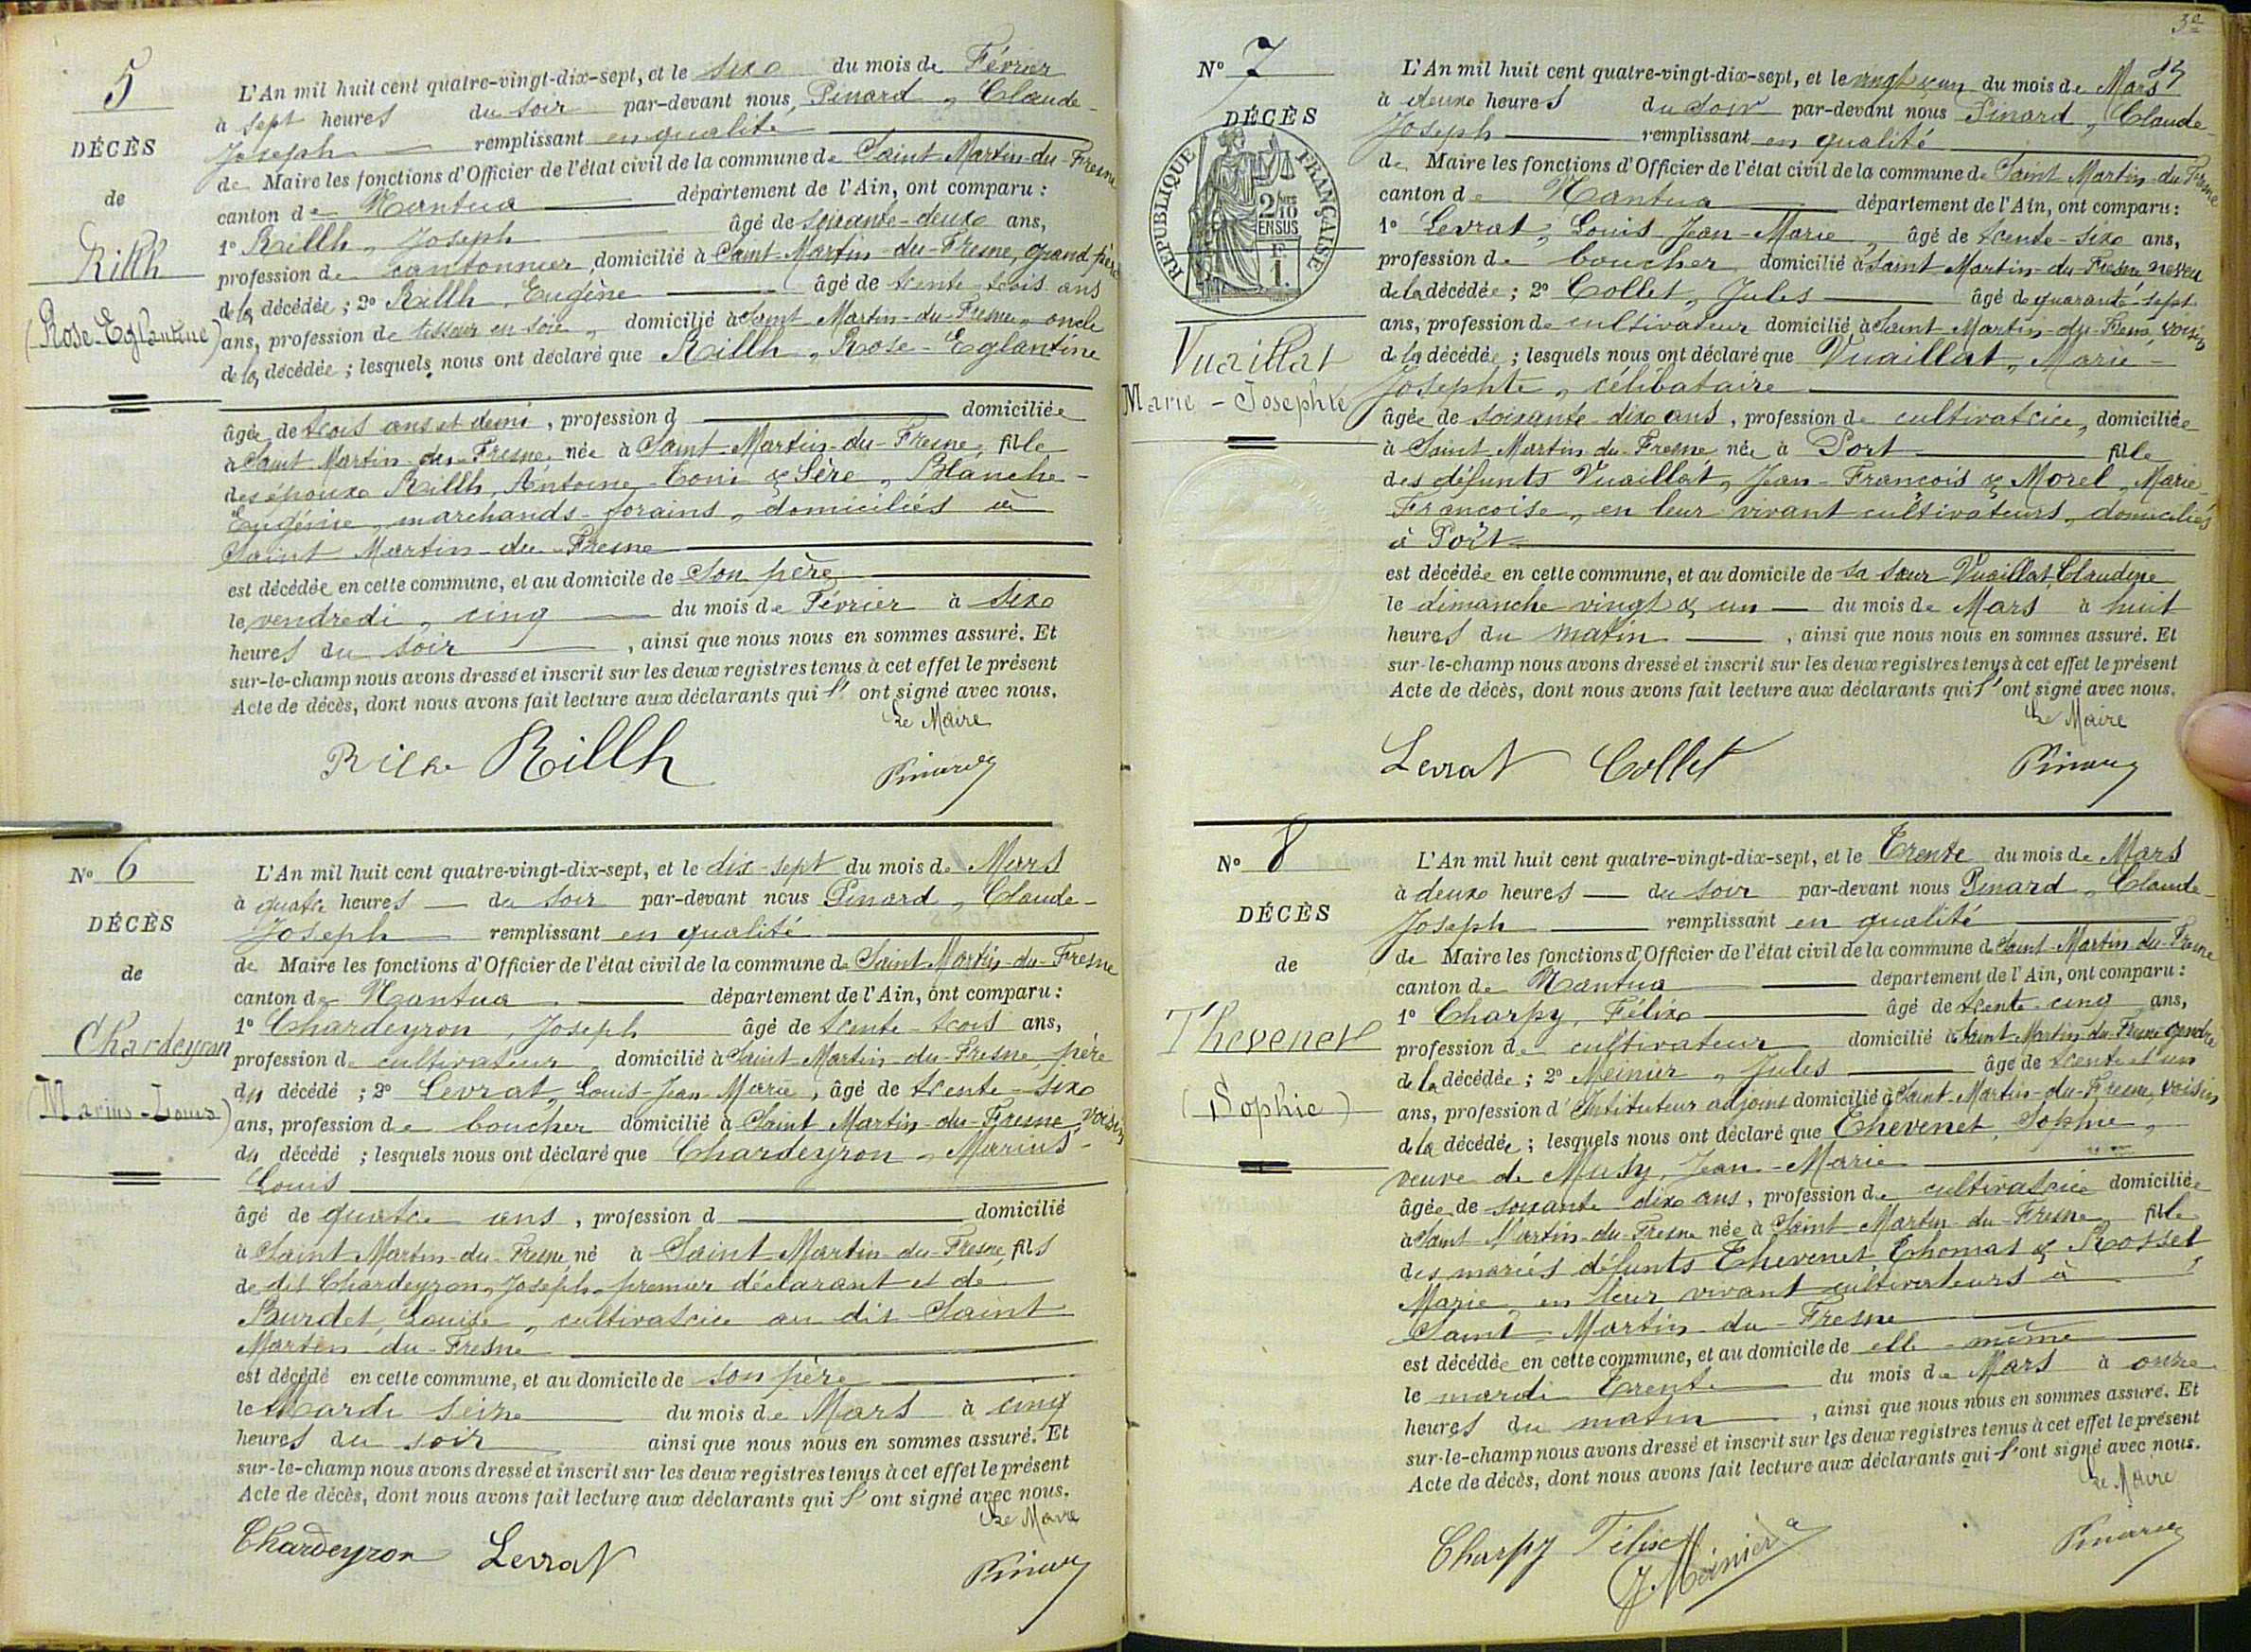 5
DÉCÈS
de
Rillh
(Rose-Eglantine)
L'An mil huit cent quatre-vingt-dix-sept, et le six du mois de Février
à sept heures du soir par-devant nous, Pinard, Claude-
Joseph remplissant en qualité
de Maire les fonctions d'Officier de l'état civil de la commune de Saint Martin-du-Fresne
canton de Nantua département de l'Ain, ont comparu :
1° Rillh, Joseph âgé de soixante-deux ans,
profession de cantonnier, domicilié à Saint-Martin-du-Fresne, grand père
de la décédée ; 2° Rillh, Eugène âgé de trente trois ans
ans, profession de tisseur en soie, domicilié à Saint-Martin-du-Fresne, oncle
de la décédée ; lesquels nous ont déclaré que Rillh, Rose-Eglantine
âgée de trois ans et demi, profession d domiciliée
à Saint Martin-du-Fresne, née à Saint-Martin-du-Fresne, fille
des époux Rillh, Antoine-Toni & Sère, Blanche-
Eugénie, marchands-forains, domiciliés à
Saint Martin-du-Fresne
est décédée en cette commune, et au domicile de son père
le vendredi, cinq du mois de Février à six
heures du soir, ainsi que nous nous en sommes assuré. Et
sur-le-champ nous avons dressé et inscrit sur les deux registres tenus à cet effet le présent
Acte de décès, dont nous avons fait lecture aux déclarants qui l' ont signé avec nous.
Le Maire
Rillh Rillh Pinard
N° 6
DÉCÈS
de
Chardeyron
(Marius-Louis)
L'An mil huit cent quatre-vingt-dix-sept, et le dix-sept du mois de Mars
à quatre heures du soir par-devant nous Pinard, Claude-
Joseph remplissant en qualité
de Maire les fonctions d'Officier de l'état civil de la commune de Saint Martin-du-Fresne
canton de Nantua département de l'Ain, ont comparu :
1° Chardeyron, Joseph âgé de trente-trois ans,
profession de cultivateur, domicilié à Saint-Martin-du-Fresne, père
du décédé ; 2° Levrat, Louis-Jean-Marie, âgé de trente-six
ans, profession de boucher domicilié à Saint Martin-du-Fresne, voisin
du décédé ; lesquels nous ont déclaré que Chardeyron, Marius-
Louis
âgé de quatre ans, profession d domicilié
à Saint Martin-du-Fresne, né à Saint-Martin-du-Fresne, fils
de dit Chardeyron, Joseph, premier déclarant et de
Burdet, Louise, cultivatrice au dit Saint
Martin-du-Fresne
est décédé en cette commune, et au domicile de son père
le Mardi seize du mois de Mars à cinq
heures du soir ainsi que nous nous en sommes assuré. Et
sur-le-champ nous avons dressé et inscrit sur les deux registres tenus à cet effet le présent
Acte de décès, dont nous avons fait lecture aux déclarants qui l' ont signé avec nous.
Le Maire
Chardeyron Levrat Pinard
3e
17
N° 7
DÉCÈS
REPUBLIQUE FRANÇAISE
2/10 EN SUS
F. 1.
Vuaillat
Marie-Josephte
L'An mil huit cent quatre-vingt-dix-sept, et le vingt & un du mois de Mars
à deux heures du soir par-devant nous Pinard, Claude-
Joseph remplissant en qualité
de Maire les fonctions d'Officier de l'état civil de la commune de Saint Martin-du-Fresne
canton de Nantua département de l'Ain, ont comparu :
1° Levrat, Louis-Jean-Marie, âgé de trente-six ans,
profession de boucher domicilié à Saint Martin-du-Fresne, neveu
de la décédée ; 2° Collet, Jules âgé de quarante-sept
ans, profession de cultivateur domicilié à Saint Martin-du-Fresne, voisin
de la décédée ; lesquels nous ont déclaré que Vuaillat, Marie-
Josephte, célibataire
âgée de soixante-dix ans, profession de cultivatrice, domiciliée
à Saint Martin du Fresne, née à Port fille
des défunts Vuaillat, Jean-François & Morel, Marie-
Françoise, en leur vivant cultivateurs, domiciliés
à Port
est décédée en cette commune, et au domicile de sa sœur Vuaillat, Claudine
le dimanche vingt & un du mois de Mars à huit
heures du matin, ainsi que nous nous en sommes assuré. Et
sur-le-champ nous avons dressé et inscrit sur les deux registres tenus à cet effet le présent
Acte de décès, dont nous avons fait lecture aux déclarants qui l' ont signé avec nous.
Le Maire
Levrat Collet Pinard
N° 8
DÉCÈS
de
Thevenet
(Sophie)
L'An mil huit cent quatre-vingt-dix-sept, et le Trente du mois de Mars
à deux heures du soir par-devant nous Pinard, Claude-
Joseph remplissant en qualité
de Maire les fonctions d'Officier de l'état civil de la commune de Saint-Martin-du-Fresne
canton de Nantua département de l'Ain, ont comparu :
1° Charpy, Félix âgé de trente-cinq ans,
profession de cultivateur domicilié à Saint-Martin-du-Fresne, gendre
de la décédée ; 2° Meinier, Jules âgé de trente et un
ans, profession d'Instituteur adjoint domicilié à Saint-Martin-du-Fresne, voisin
de la décédée ; lesquels nous ont déclaré que Thevenet, Sophie,
veuve de Musy, Jean-Marie
âgée de soixante dix ans, profession de cultivatrice domiciliée
à Saint-Martin-du-Fresne née à Saint-Martin-du-Fresne fille
des mariés défunts Thevenet Thomas & Rosset
Marie, en leur vivant cultivateurs à
Saint-Martin-du-Fresne
est décédée en cette commune, et au domicile de elle-même
le mardi Trente du mois de Mars à onze
heures du matin, ainsi que nous nous en sommes assuré. Et
sur-le-champ nous avons dressé et inscrit sur les deux registres tenus à cet effet le présent
Acte de décès, dont nous avons fait lecture aux déclarants qui l'ont signé avec nous.
Le Maire
Charpy Félix J Meinier Pinard